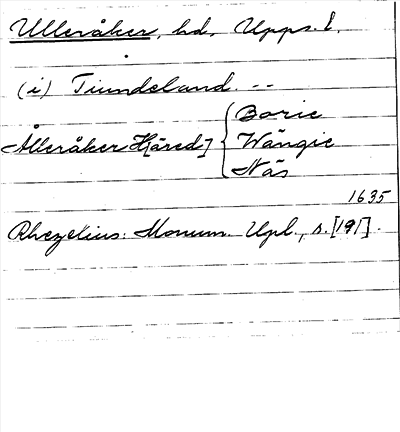 Ulleråker, hd, Upps. l.
(i) Tiundeland. --
Borie
Ålleråker H[äred] { Wängie
Näs
1635
Rhezelius: Monum. Upl., s. [191].